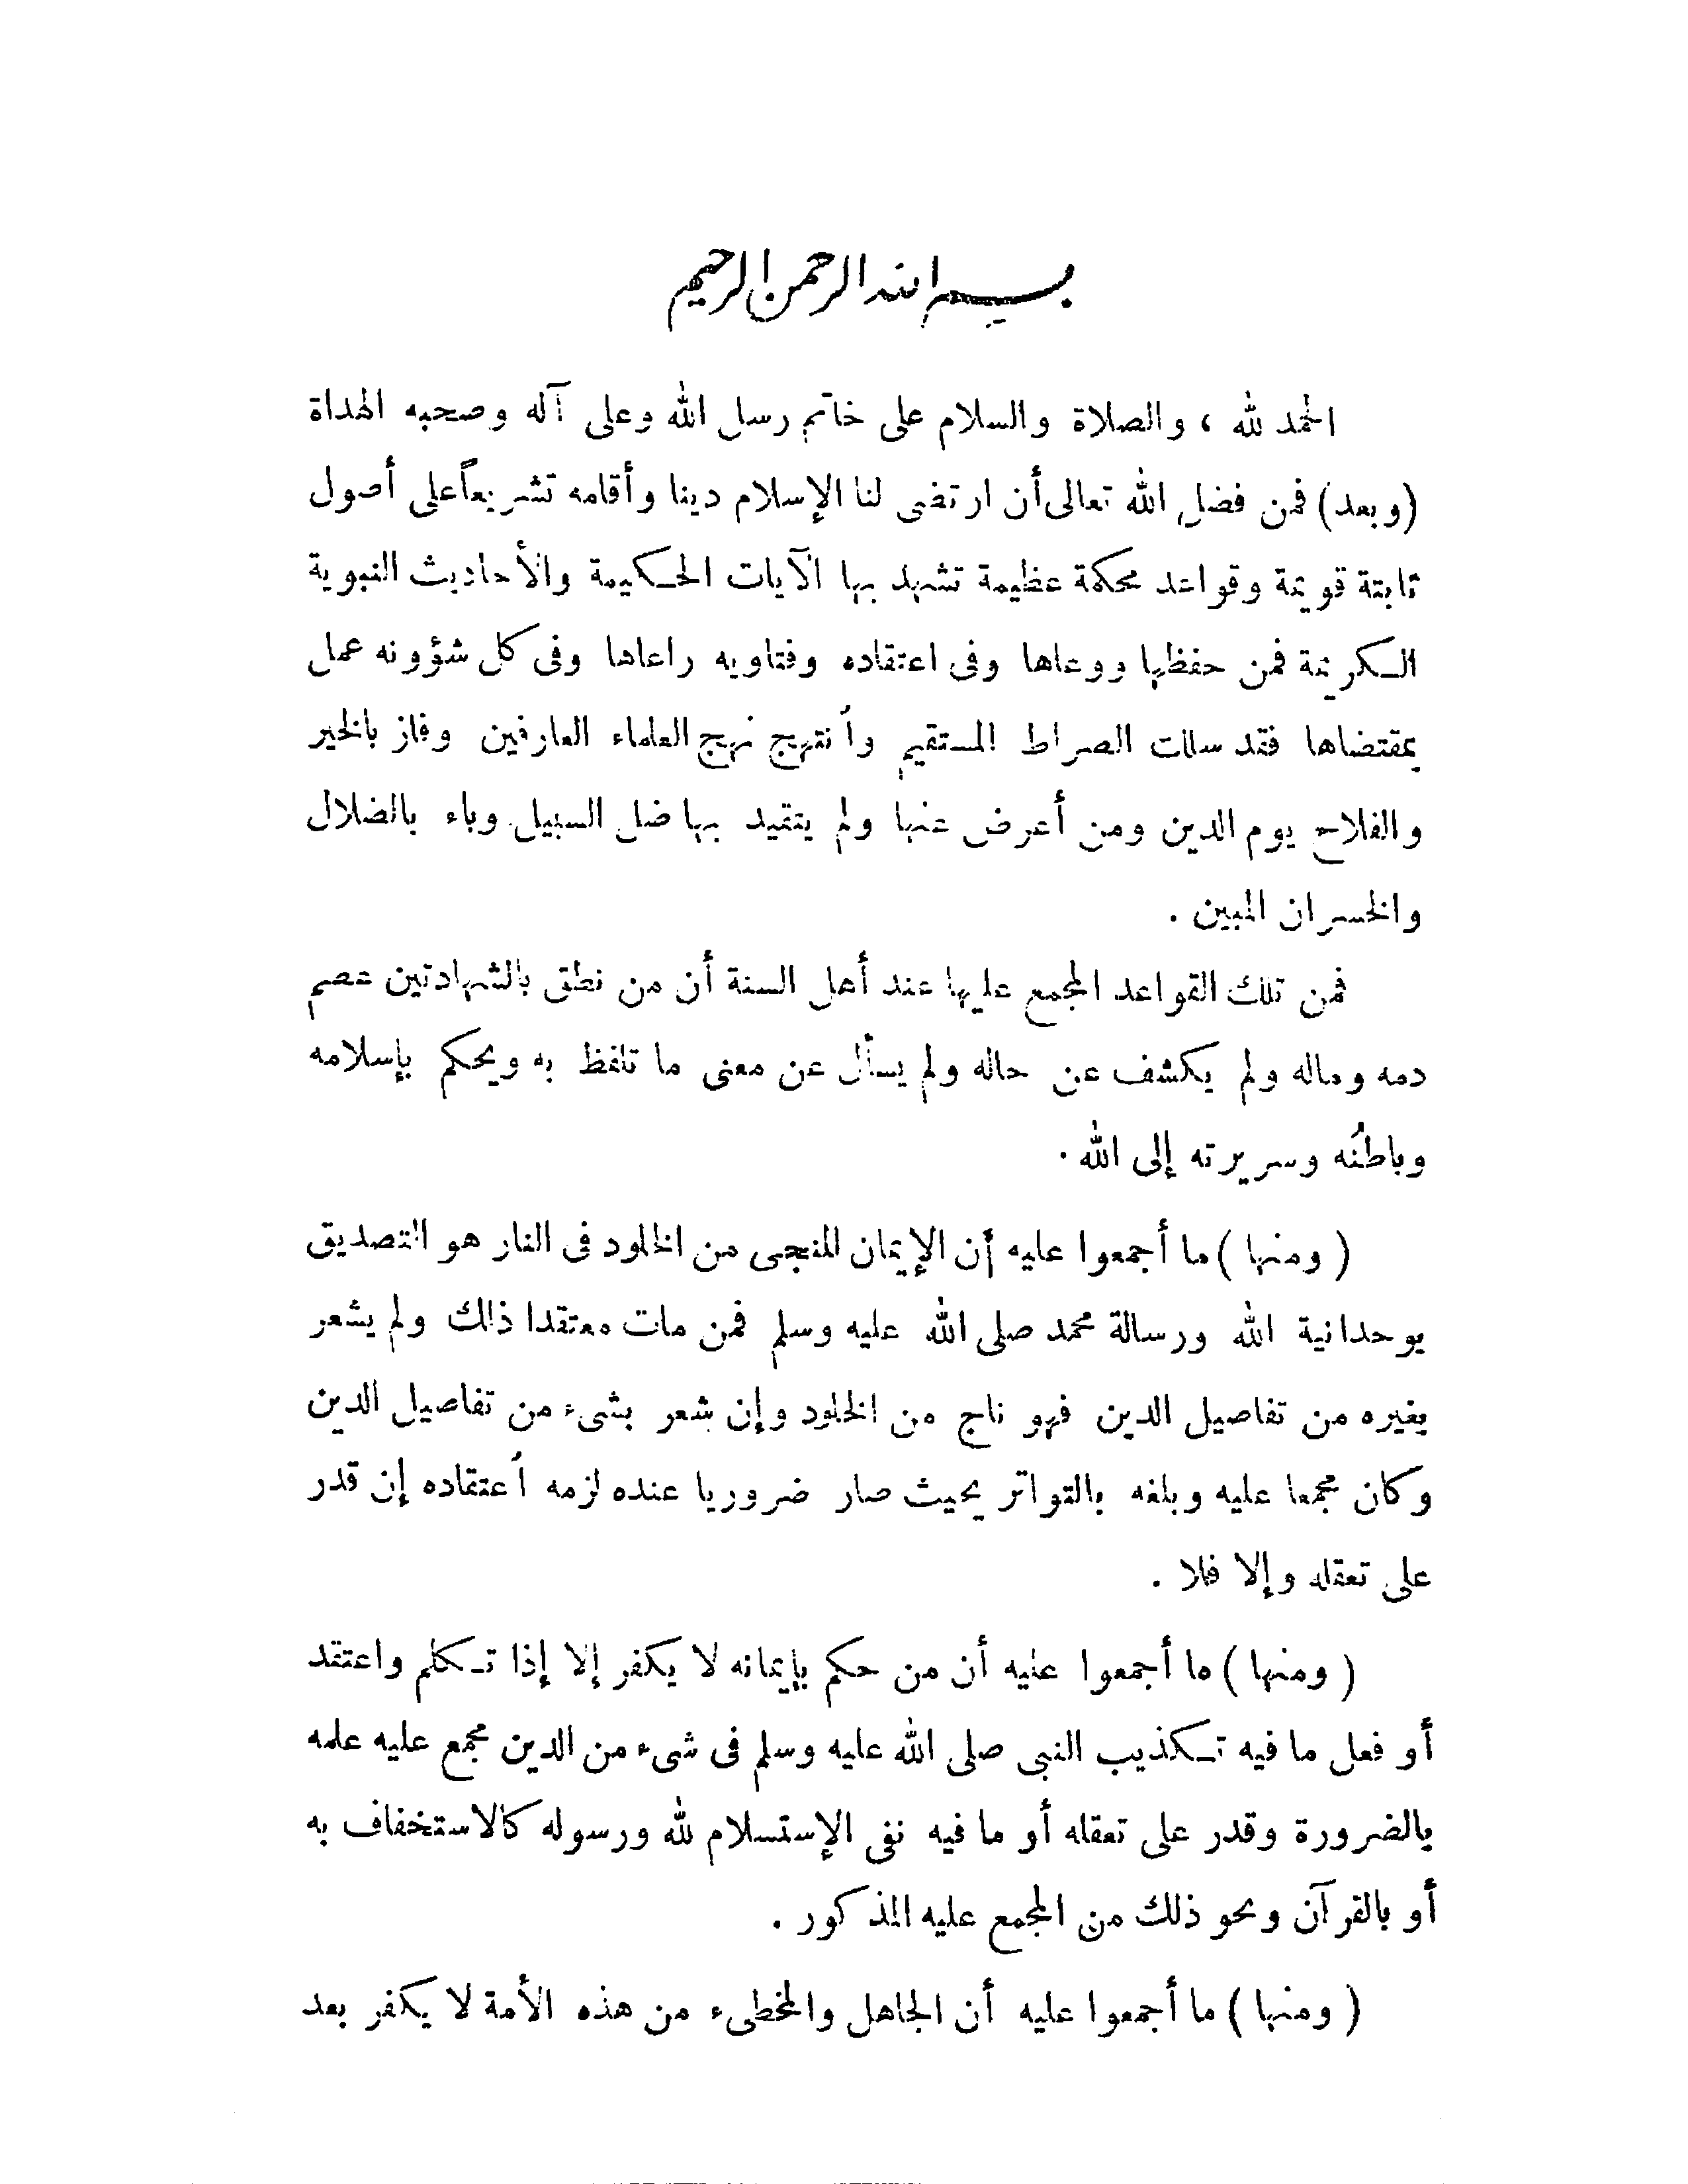 بسم الله الرحمن الرحيم
الحمد لله ، والصلاة والسلام على خاتم رسل الله وعلى آله وصحبه الهداة
(وبعد) فمن فضل الله تعالى أن ارتضى لنا الإسلام دينا وأقامه تشريعاً على أصول
ثابتة قويمة وقواعد محكمة عظيمة تشهد بها الآيات الحكيمة والأحاديث النبوية
الكريمة فمن حفظها ووعاها وفى اعتقاده وفتاويه راعاها وفى كل شؤونه عمل
بمقتضاها فقد سلك الصراط المستقيم وأنتهج نهج العلماء العارفين وفاز بالخير
والفلاح يوم الدين ومن أعرض عنها ولم يتقيد بها ضل السبيل وباء بالضلال
والخسران المبين .
فمن تلك القواعد المجمع عليها عند أهل السنة أن من نطق بالشهادتين عصم
دمه وماله ولم يكشف عن حاله ولم يسأل عن معنى ما تلفظ به ويحكم بإسلامه
وباطنُه وسريرته إلى الله .
( ومنها ) ما أجمعوا عليه أن الإيمان المنجى من الخلود فى النار هو التصديق
بوحدانية الله ورسالة محمد صلى الله عليه وسلم فمن مات معتقدا ذلك ولم يشعر
بغيره من تفاصيل الدين فهو ناج من الخلود وإن شعر بشىء من تفاصيل الدين
وكان مجمعا عليه وبلغه بالتواتر بحيث صار ضروريا عنده لزمه أعتقاده إن قدر
على تعقله وإلا فلا .
( ومنها ) ما أجمعوا عليه أن من حكم بإيمانه لا يكفر إلا إذا تكلم واعتقد
أو فعل ما فيه تكذيب النبى صلى الله عليه وسلم فى شىء من الدين مجمع عليه علمه
بالضرورة وقدر على تعقله أو ما فيه نفى الإستسلام لله ورسوله كالاستخفاف به
أو بالقرآن ونحو ذلك من المجمع عليه المذكور .
( ومنها ) ما أجمعوا عليه أن الجاهل والمخطىء من هذه الأمة لا يكفر بعد